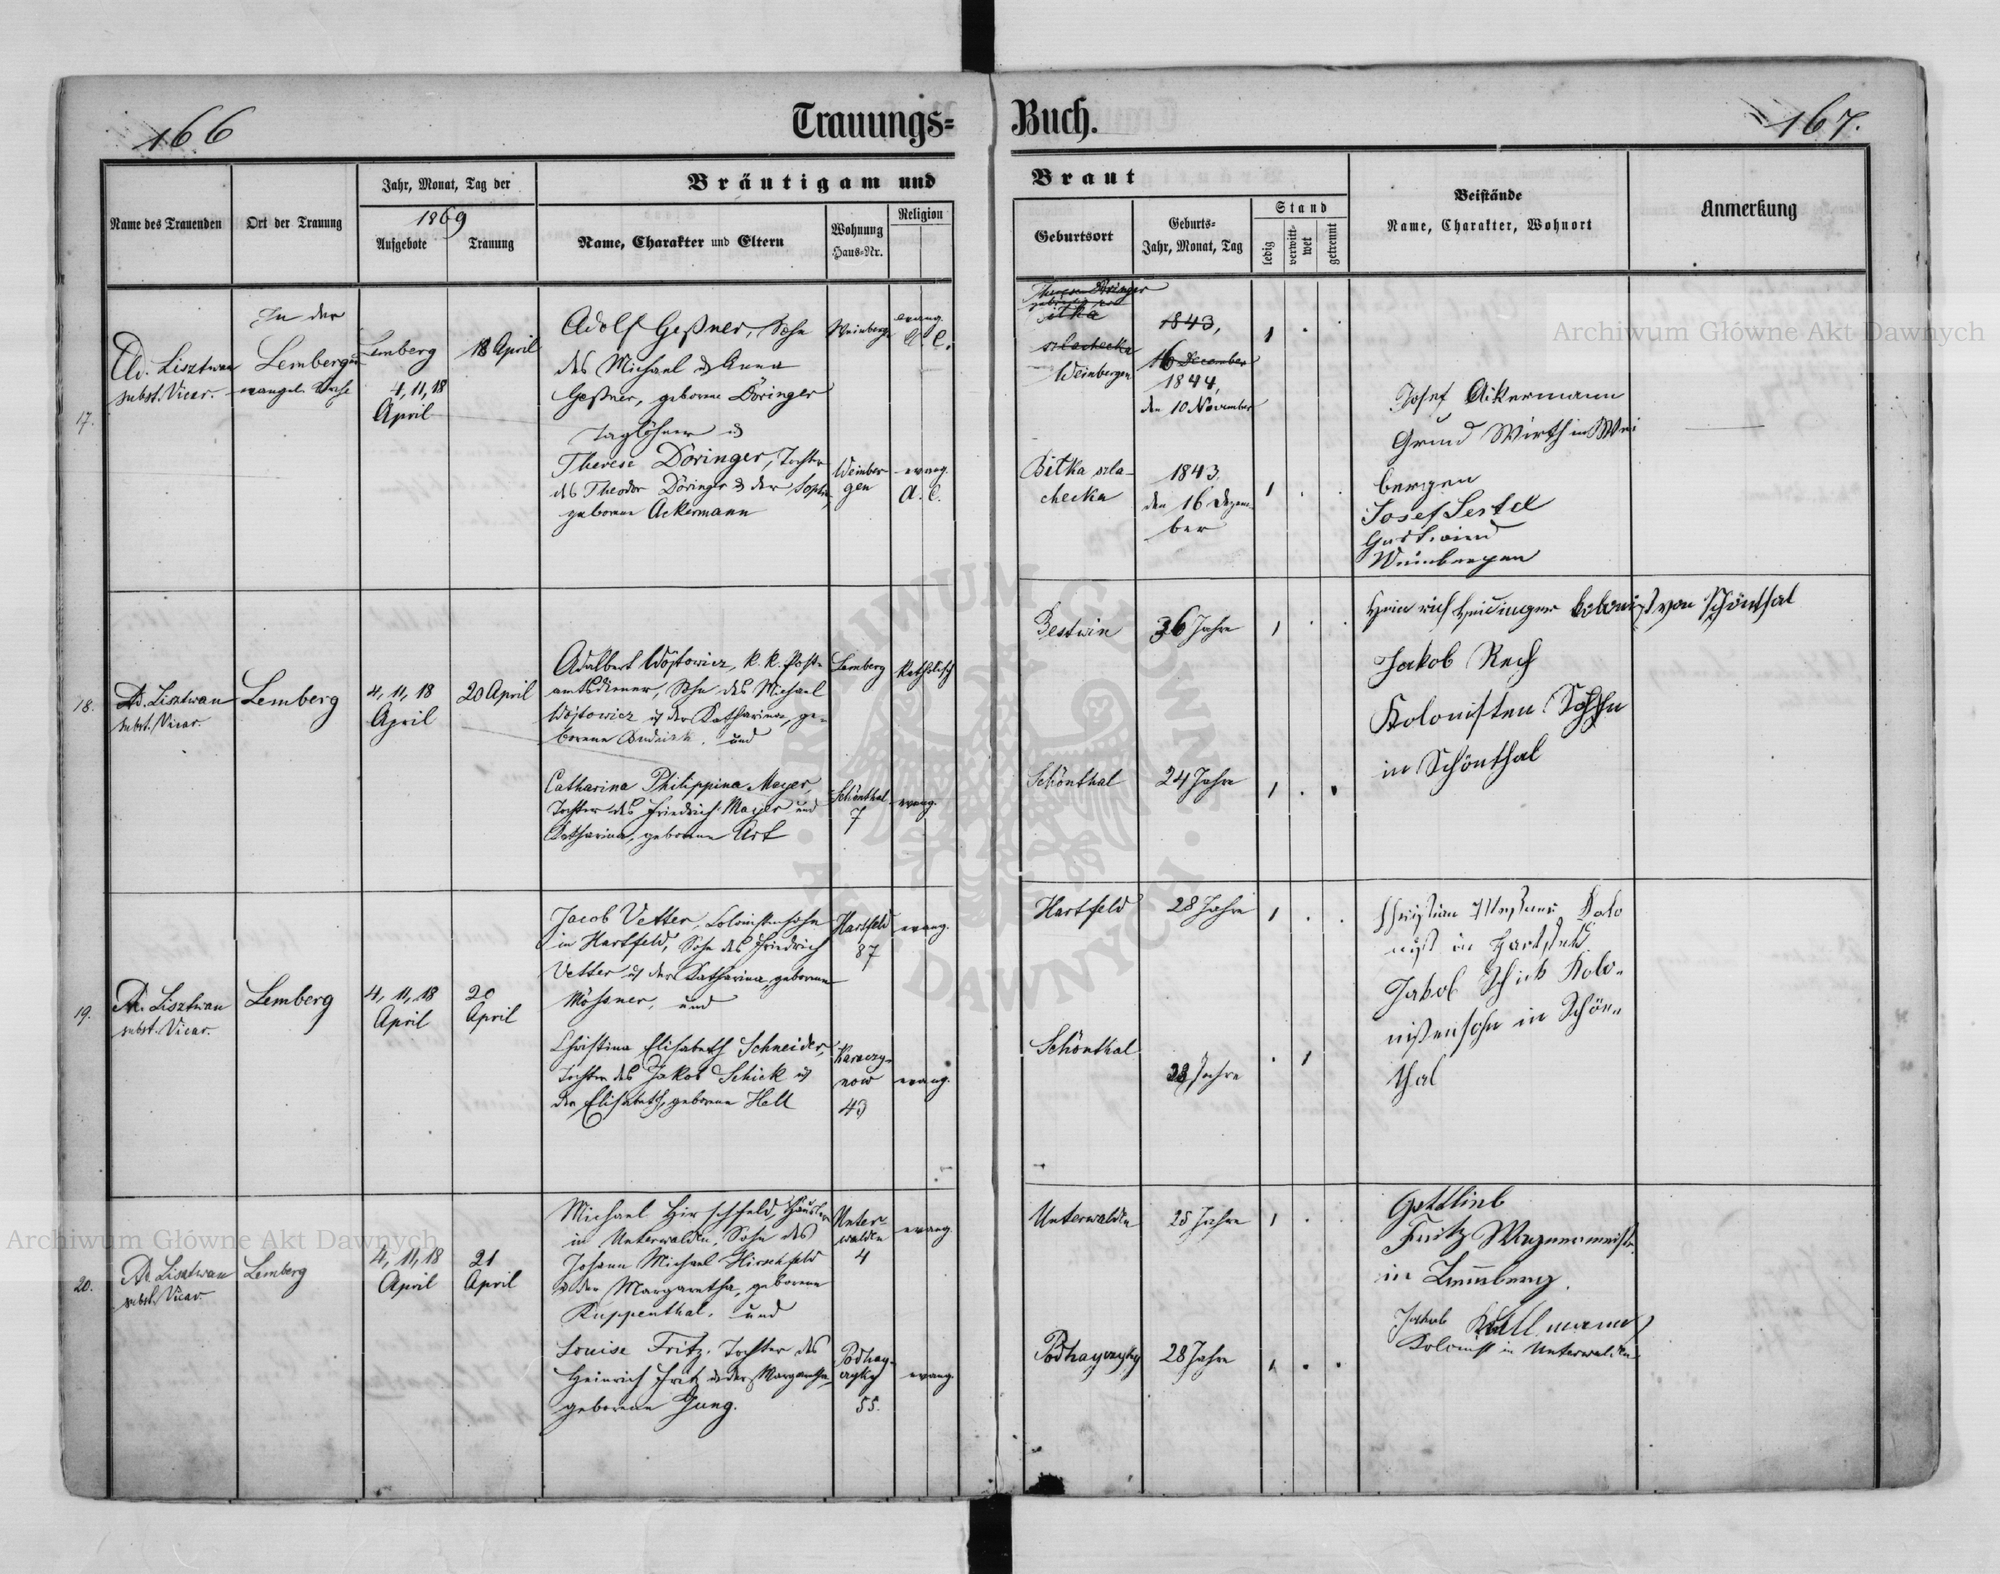 166
Trauungs-
Buch.
167.
Name des Trauenden
Ort der Trauung
Jahr, Monat, Tag der
1869
Aufgebote
Trauung
Bräutigam und
Name, Charakter und Eltern
Wohnung
Haus-Nr.
Religion
Braut
Geburtsort
Geburts-
Jahr, Monat, Tag
Stand
ledig
verwitt-
wet
getrennt
Beistände
Name, Charakter, Wohnort
Anmerkung
17.
Ad. Lisztwan
subst. Vicar.
In der
Lemberger
evangel. Kirche
Lemberg
4, 11, 18
April
18 April
Adolf Geßner, Sohn
des Michael & Anna
Geßner, geborene Döringer
Taglöhner &
Therese Döringer, Tochter
des Theodor Döringer & der Sophie,
geborene Ackermann
Weinbergen
evang.
A. C.
Weinber-
gen
evang.
A. C.
Therese Döringer
itka
szlachecka
Weinbergen
1843,
16 December
1844,
den 10 November
Bitka szla-
checka
1843.
den 16 Dezem-
ber
Josef Ackermann
Grund Wirth in Wei
bergen
Josef
Weinbergen
18.
Ad. Lisztwan
subst. Vicar.
Lemberg
4, 11, 18
April
20 April
Adalbert Wójtowicz, k. k. Post-
amtsdiener, Sohn des Michael
Wójtowicz & der Katharina, ge-
borene und
Catharina Philippina Mayer,
Tochter des Friedrich Mayer und
Catharina, geborene Art
Lemberg
Katholisch
Schönthal
7
evang.
Bestwin
36 Jahre
Schönthal
24 Jahre
Heinrich Heidinger Kolonist von Schönthal
Jakob Rech
Kolonisten Sohn
in Schönthal
19.
Ad. Lisztwan
subst. Vicar.
Lemberg
4, 11, 18
April
20
April
Jacob Vetter, Colonistensohn
in Hartfeld, Sohn des Friedrich
Vetter & der Katharina, geborene
Mößner, und
Christina Elisabeth Schneider,
Tochter des Jakob Schick &
der Elisabeth, geborene Hell
Hartfeld
87
evang.
Karaczy-
now
43
evang.
Hartfeld
28 Jahre
Schönthal
28 Jahre
Christian Kolo
nist in Hartfeld
Jakob Schick Kolo-
nistensohn in Schön-
thal
20.
Ad. Lisztwan
subst. Vicar.
Lemberg
4, 11, 18
April
21
April
Michael Hirschfeld, Häusler
in Unterwalden, Sohn des
Johann Michael Hirschfeld
& der Margaretha, geborene
Kuppenthal, und
Louise Fritz, Tochter des
Heinrich Fritz & der Margaretha,
geborene Jung.
Unter-
walden
4
evang
Podhay-
czyky
55.
evang.
Unterwalden
25 Jahre
Podhayczyky
28 Jahre
Gottlieb
Fritz Wagnermeister
in Lemberg.
Jakob Kullmann
Kolonist in Unterwalden
Archiwum Główne Akt Dawnych
Archiwum Główne Akt Dawnych
ARCHIWUM GŁÓWNE AKT DAWNYCH